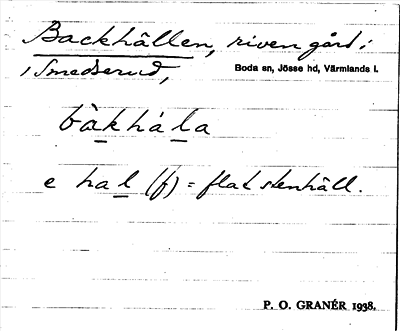 Backhällen, riven gård i
i Smedserud, Boda sn, Jösse hd, Värmlands l.
bàkhála
e hal (f) = flat stenhäll.
P. O. GRANÉR 1938.